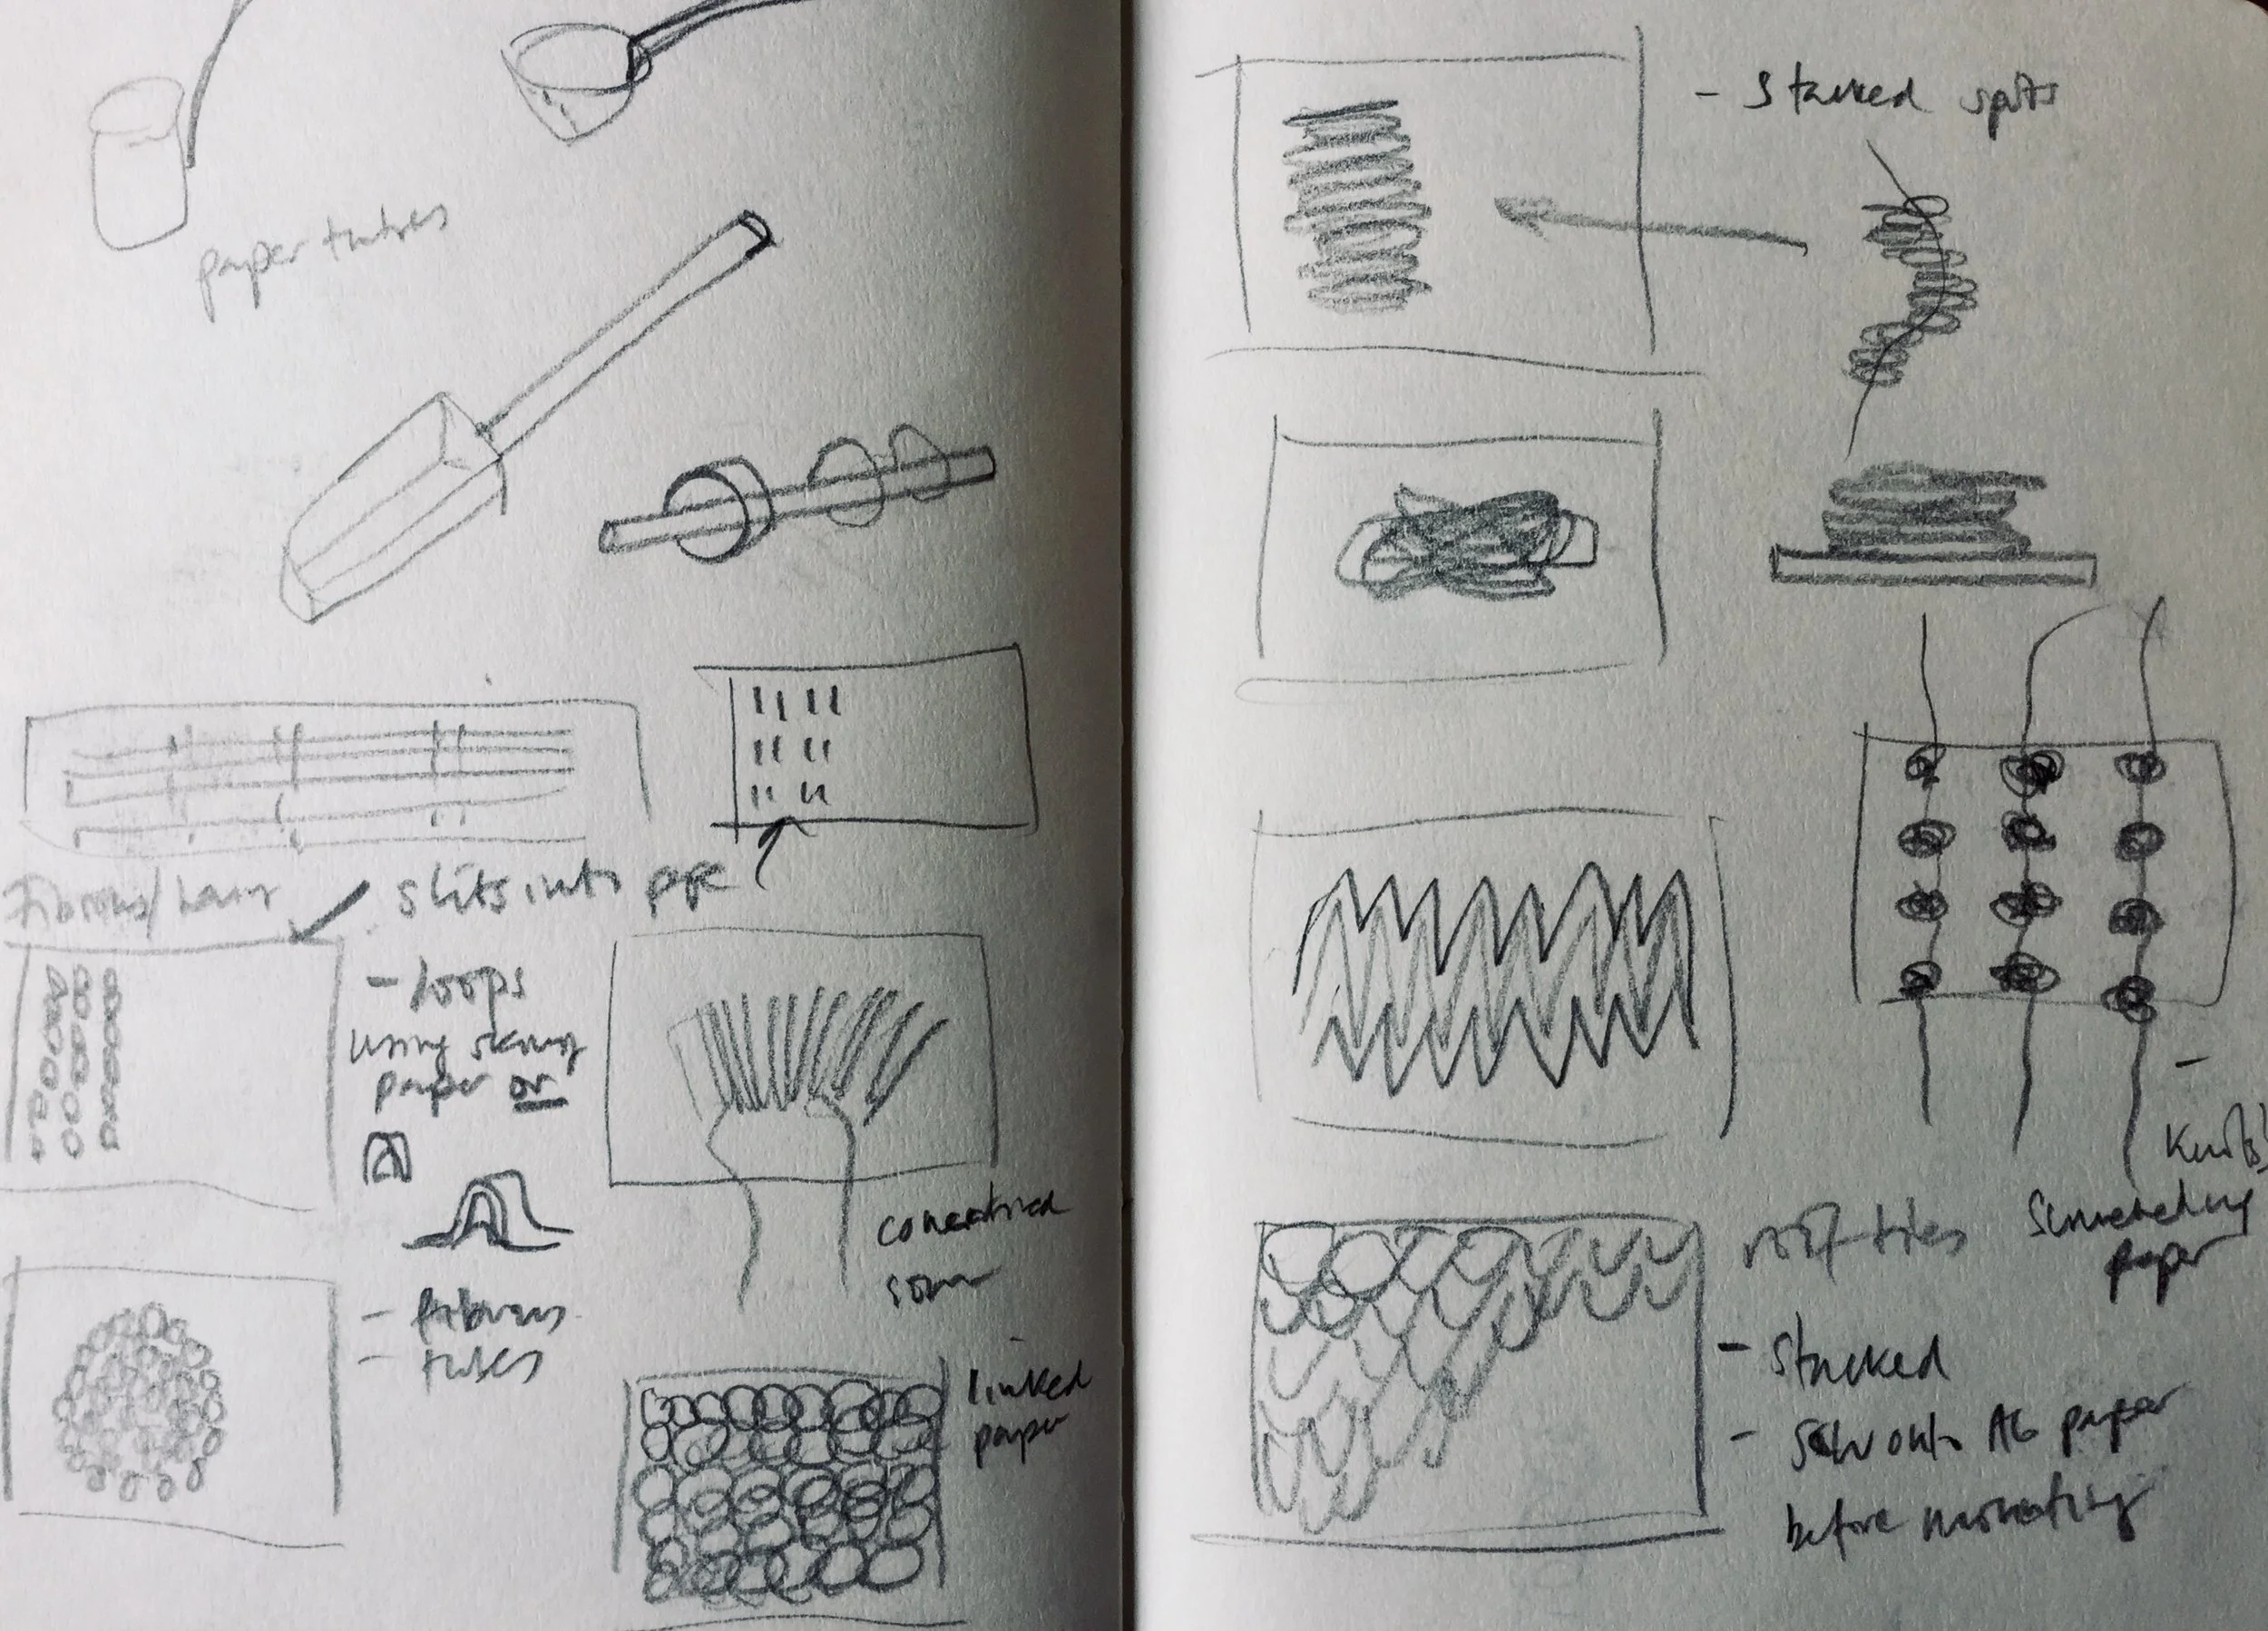 paper tubes
slits into
- loops
using skinny
paper or
- fibrous
- tubes
linked
paper
- Stacked spots
Knots!
paper
roof tiles
- Stacked
- Sew onto A6 paper
before mounting